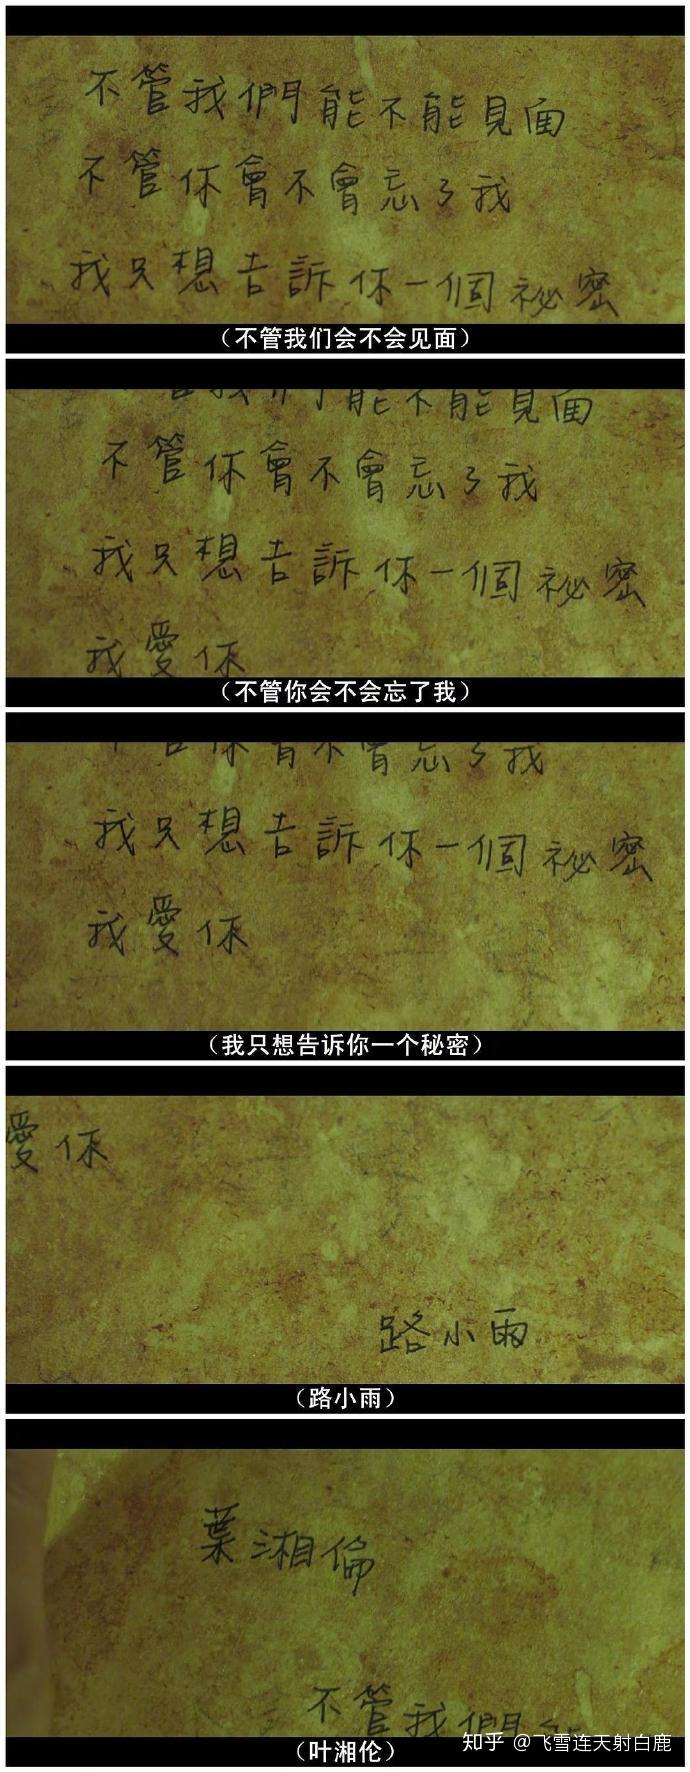 不管我們能不能見面
不管你會不會忘了我
我只想告訴你一個祕密
（不管我们会不会见面）
我們能不能見面
不管你會不會忘了我
我只想告訴你一個祕密
我愛你
（不管你会不会忘了我）
不管你會不會忘了我
我只想告訴你一個祕密
我愛你
（我只想告诉你一个秘密）
愛你
路小雨
（路小雨）
葉湘倫
不管我們
（叶湘伦）
知乎 @飞雪连天射白鹿